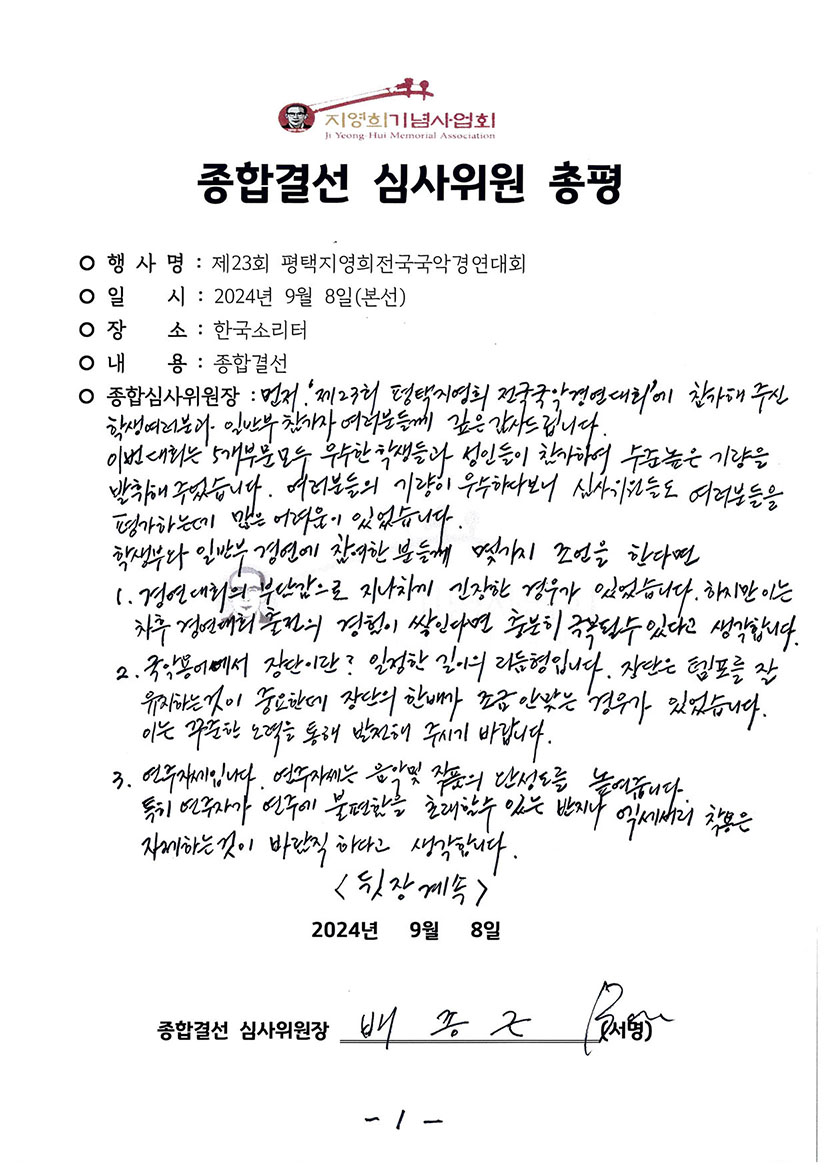 지영희기념사업회
Ji Yeong-Hui Memorial Association
종합결선 심사위원 총평
○ 행 사 명 : 제23회 평택지영희전국국악경연대회
○ 일 시 : 2024년 9월 8일(본선)
○ 장 소 : 한국소리터
○ 내 용 : 종합결선
○ 종합심사위원장 : 먼저 '제23회 평택지영희 전국국악경연대회'에 참가해 주신
학생여러분과 일반부 참가자 여러분들께 깊은 감사드립니다.
이번 대회는 5개부문 모두 우수한 학생들과 성인들이 참가하여 수준높은 기량을
발휘해 주었습니다. 여러분들의 기량이 우수하다보니 심사위원들도 여러분들을
평가하는데 많은 어려움이 있었습니다.
학생부와 일반부 경연에 참여한 분들께 몇가지 조언을 한다면
1. 경연대회의 부담감으로 지나치게 긴장한 경우가 있었습니다. 하지만 이는
차후 경연대회 출전의 경험이 쌓인다면 충분히 극복될수 있다고 생각합니다.
2. 국악용어에서 장단이란? 일정한 길이의 리듬형입니다. 장단은 템포를 잘
유지하는것이 중요한데 장단의 한배가 조금 안맞는 경우가 있었습니다.
이는 꾸준한 노력을 통해 발전해 주시기 바랍니다.
3. 연주자세입니다. 연주자세는 음악및 작품의 완성도를 높여줍니다.
특히 연주자가 연주에 불편함을 초래할수 있는 반지나 악세서리 착용은
자제하는것이 바람직 하다고 생각합니다.
<뒷장계속>
2024년 9월 8일
종합결선 심사위원장 배종근 (서명)
- 1 -